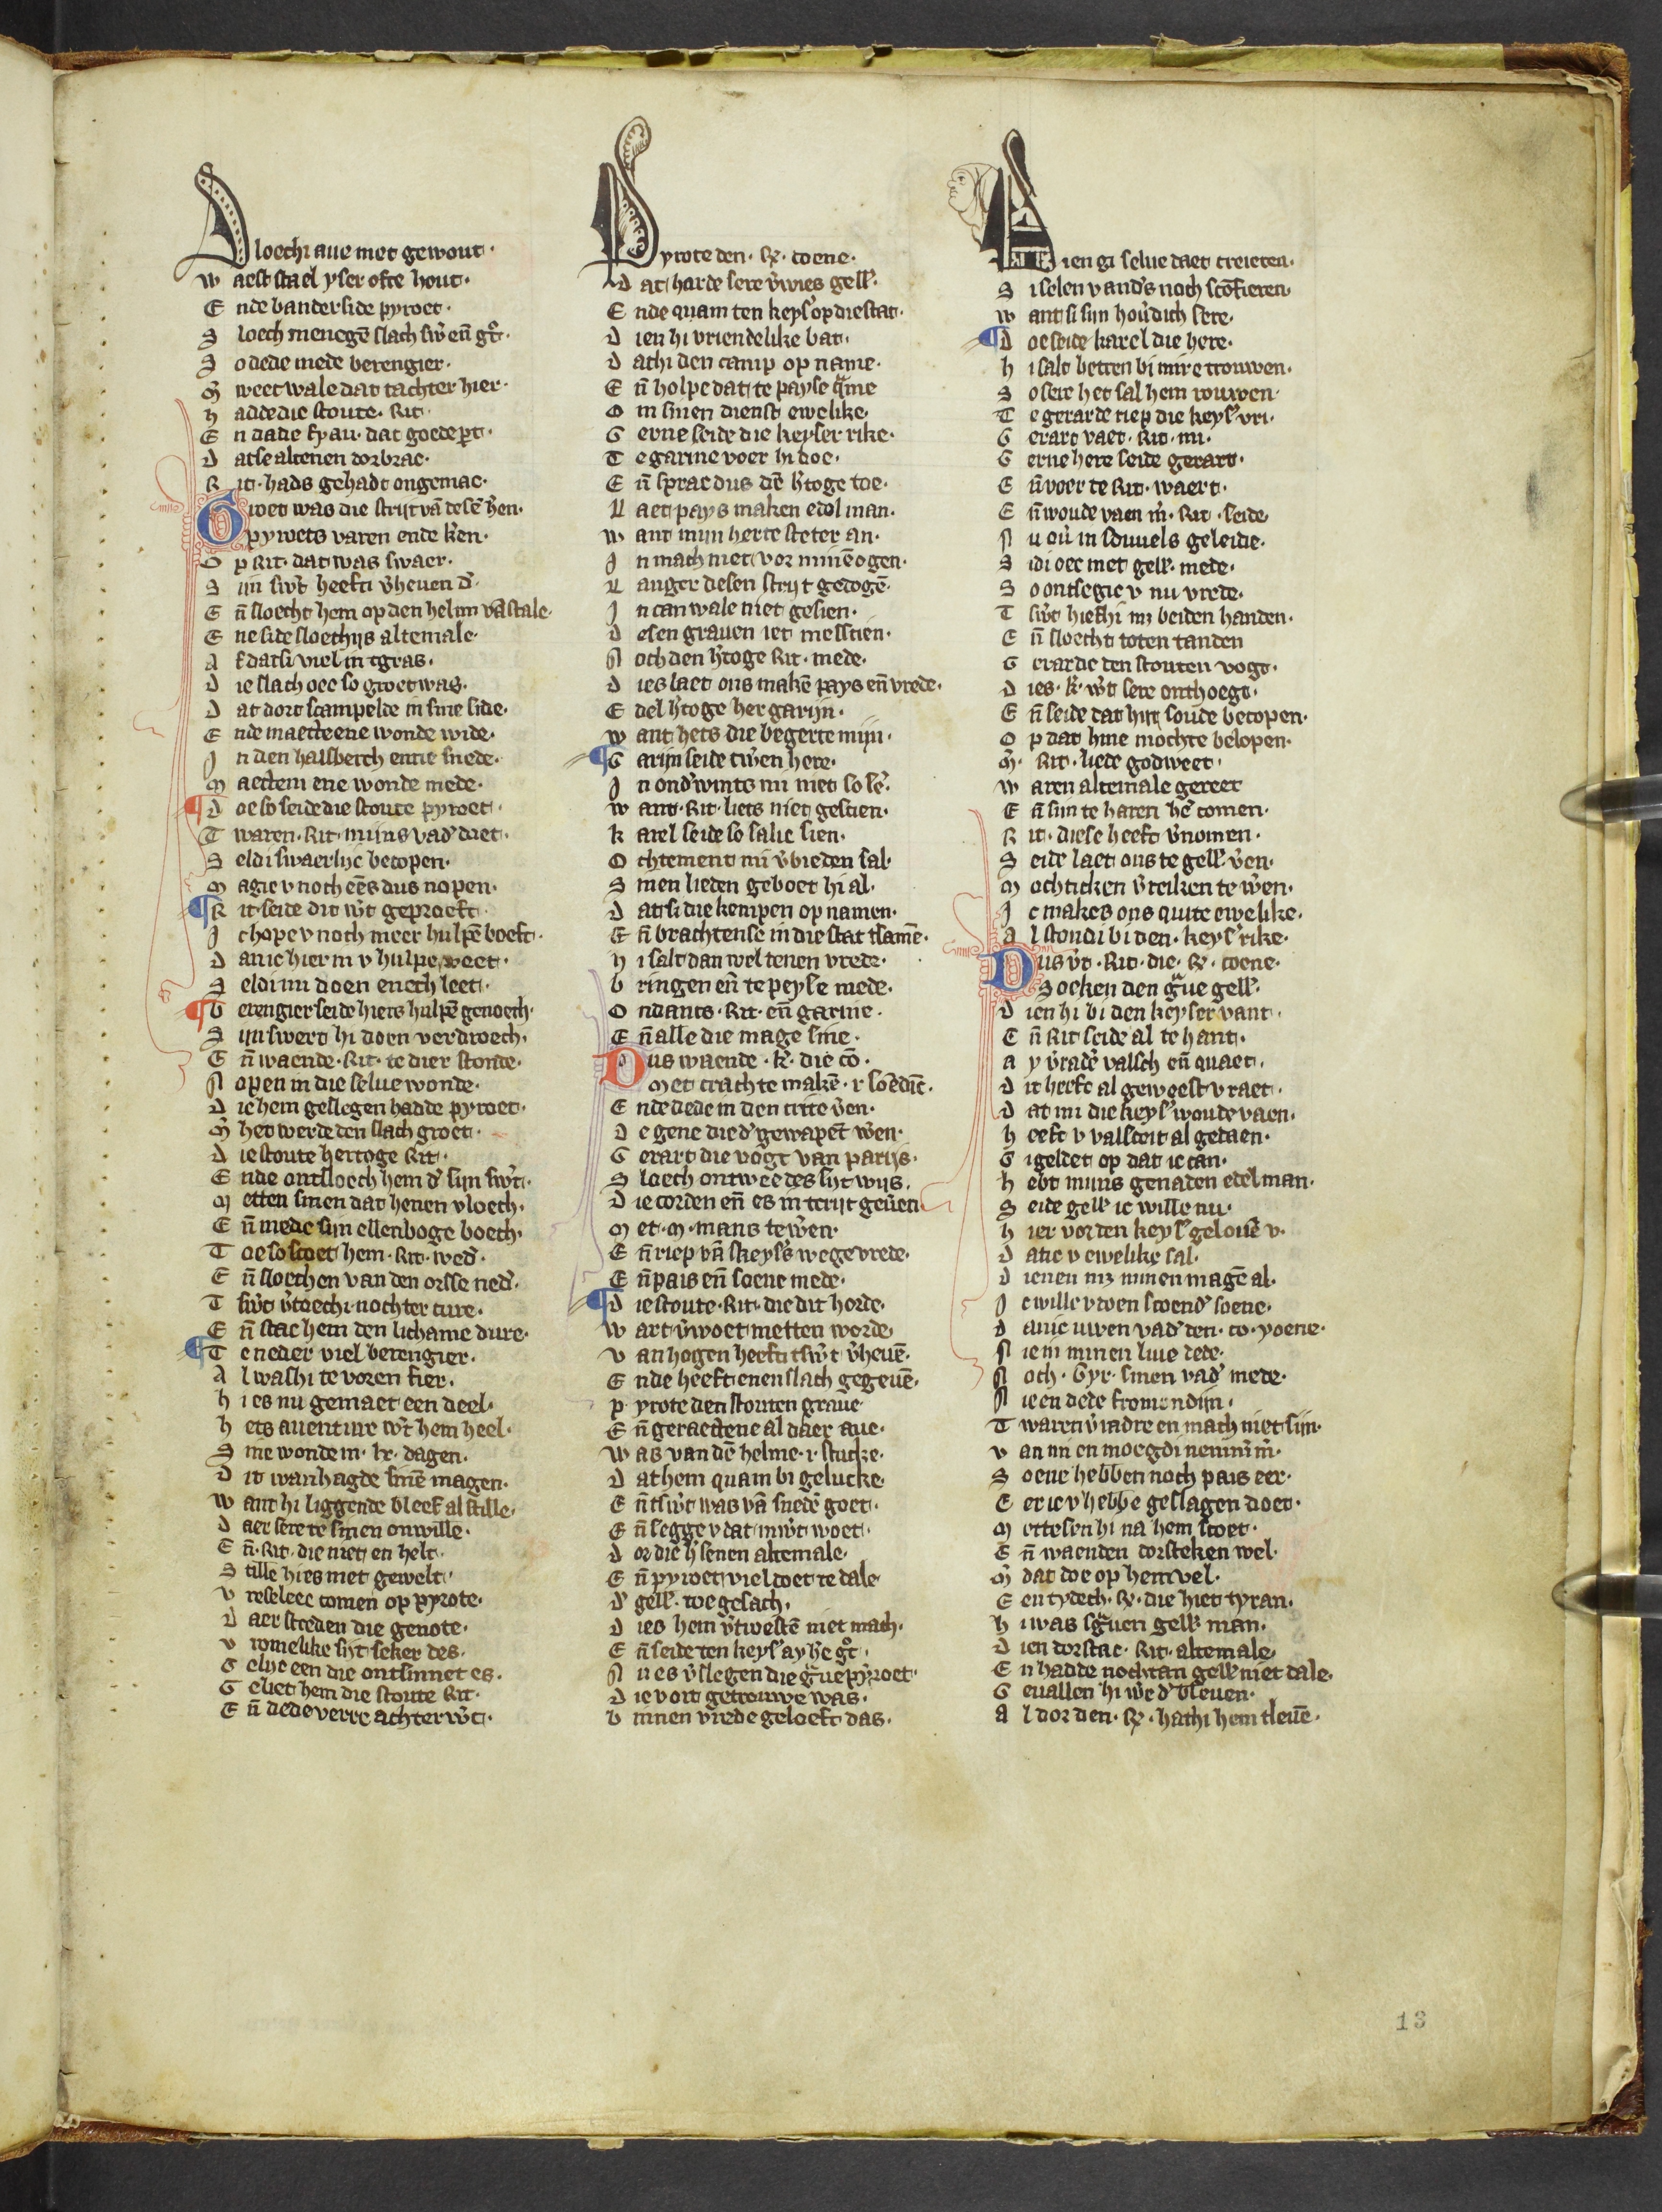 Sloechi aue met gewout.
waest stael yser ofte hout.
Ende banderside pyroet.
Sloech menegē slach sw̄ en̄ gt.
So dede mede berengier.
M̄ weet wale dat tachter hier.
hadde die stoute. Rit.
En dade fyau. dat goede pt.
datse altenen dorbrac.
Rit. hads gehadt ongemac.
Groet was die strijt vā desē h̄en.
Opywets varen ende k̄en.
Op Rit. dat was swaer.
Sijn sw̄t heefti v̄heuen d̄.
En̄ sloecht hem op den helm vā stale.
Ene side sloechijs altemale.
Af datsi viel in tgras.
die slach oec so groet was.
dat dort scampelde in sine side.
Ende maecte ene wonde wide.
In den halsberch ene snede.
Maectem ene wonde mede.
doe so seide die stoute pyroet.
Twaren. Rit. mijns vad̄ diet.
Seldi swaerlijc becopen.
Magic v noch eēs dus nopen.
Rit seide dit w̄t geproeft.
Ic hope v noch meer hulpē boeft.
dan ic hier in v hulpe weet.
Seldi mi doen enech leet.
berengier seide hiets hulpē genoech.
Sijn swert hi doen verdroech.
En̄ waende. Rit. te dier stonde.
Nopen in die selue wonde.
die hem geslegen hadde pyroet.
M̄ het werde den slach groet.
die stoute hertoge Rit.
Ende ontsloech hem d̄ sijn sw̄t.
Metten sinen dat henen vloech.
En̄ mede sijn ellenboge boech.
Toe so scoet hem. Rit. wed̄.
En̄ sloechen van den orsse ned̄.
Tsw̄t v̄toechi nochter ture.
En̄ stac hem den lichame dure.
Te neder viel berengier.
Al washi te voren fier.
hi es nu gemaect een deel.
hets auenture w̄t hem heel.
Sine wonde in. lx. dagen.
dit wanhagde sinē magen.
want hi liggende bleef al stille.
daer sere te sinen onwille.
En̄. Rit. die niet en helt.
Stille hi es met gewelt.
vreselec comen op pyrote.
daer streden die genote.
vromelike sijt seker des.
Gelijc een die ontsinnet es.
Geliet hem die stoute Rit.
En̄ dede verre achter w̄t.
Pyrote den. ℞. coene.
dat harde sere v̄wies gell̄.
Ende quam ten keys̄ op die stat.
dien hi vriendelike bat.
dat hi den camp op name.
En̄ holpe dat te payse q̄me
Om sinen dienst ewelike.
Gerne seide die keyser rike.
Te garine voer hi doe.
En̄ sprac dus dē h̄toge toe.
Laet pays maken edel man.
want mijn herte steter an.
In mach niet vor minē ogen.
Langer desen strijt gedogē.
In can wale niet gesien.
desen grauen iet messcien.
Noch den h̄toge Rit. mede.
dies laet ons makē pays en̄ vrede.
Edel h̄toge her garijn.
want hets die begerte mijn.
Garijn seide tw̄en here.
In ond̄wints mi niet so se᷒.
want. Rit. liets niet gescien.
karel seide so salic sien.
Ochtement mi v̄bieden sal.
Smen lieden geboet hi al.
datsi die kempen op namen.
En̄ brachtense in die stat tsamē.
hi salt dan wel tenen vrede.
bringen en̄ te peyse mede.
Ondants. Rit. en̄ garine.
En̄ alle die mage sine.
Dus waende. k̄. die cō.
Met crachte makē. r soēdic̄.
Ende dede in den crite v̄en.
degene die d̄ gewapēt w̄en.
Gerart die vogt van parijs.
Sloech ontwee des sijt wijs.
die corden en̄ es in tcrijt geuen.
Met. M. mans te w̄en.
En̄ riep vā skeys̄s wege vrede.
En̄ pais en̄ soene mede.
die stoute. Rit. die dit horde.
wart v̄woet metten worde
van hogen heefti tsw̄t v̄heuē.
Ende heeft enen slach gegeuē.
pyrote den stouten graue
En̄ geraectene al daer aue.
was van dē helme. r stucke.
dat hem quam bi gelucke.
En̄ tsw̄t was vā snedē goet.
En̄ segge v dat inw̄t woet.
dor die h̄senen altemale.
En̄ pyroet viel doet te dale
d̄ gell̄. toe gesach.
dies hem v̄twestē niet mach.
En̄ seide ten keys̄ ay he᷒ gt.
Nu es v̄slegen die ḡue pyroet.
die vort getrouwe was.
binnen vrede geloeft das.
Dien gi selue daet creieren.
Si selen vand̄s noch scōfieren.
want si sijn hou̅dich sere.
doe seide karel die here.
hi salt beteren bi mire trouwen.
So sere het sal hem rouwen.
Te gerarde riep die keys̄ vri.
Gerart vaet. Rit. mi.
Gerne here seide gerart.
En̄ voer te Rit. waert.
En̄ woude vaen m̄. Rit. seide.
Nu ou̅ in sduuels geleide.
Sidi oec met gell̄. mede.
So ontsegic v nu vrede.
Tsw̄t hiefhi mȝ beiden handen.
En̄ sloecht toten tanden
Gerarde ten stouten vogt.
dies. k̄. w̄t sere onthoegt.
En̄ seide dat hijt soude becopen.
Op dat hine mochte belopen.
M̄. Rit. liede godweet.
waren altemale gereet
En̄ sijn te haren hē comen.
Rit. diese heeft v̄nomen.
Seide laet ons te gell̄ v̄en.
Mochticken v̄reiken te w̄en.
Ic makes ons quite ewelike.
Al stondi bi den. keys̄ rike.
Dus v̄t. Rit. die. ℞. coene.
Soeken den ḡue gell̄.
dien hi bi den keyser vant.
En̄ Rit seide al te hant.
ay v̄rad̄e valsch en̄ quaet.
dit heeft al geweest v raet.
dat mi die keys̄ woude vaen.
heeft v valsceit al gedaen.
Gi geldet op dat ic can.
hebt mijns genaden edel man.
Seide gell̄ ic wille nu.
hier vor ten keys̄ gelouē v.
datic v ewelike sal.
dienen mȝ minen magē al.
Ic wille vwen scoend̄ soene.
danic uwen vad̄ ten. co. yoene.
Nie in minen liue dede.
Noch. Gyr. sinen vad̄ mede.
Nie en dede fromondijn.
Twaren v̄radre en mach niet sijn.
van mi en moegdi nem̄m̄.
Soene hebben noch pais eer.
Eer ic v hebbe geslagen doet.
Mettesen hi na hem scoet.
En̄ waenden dorsteken wel.
M̄ dat doe op hem vel.
Een tydech. ℞. die hiet tyran.
hi was sḡuen gell̄ man.
dien dorstac. Rit. altemale.
En hadde nochtan gell̄ niet dale.
Geuallen hi w̄e d̄ bleuen.
Al dor den. ℞. hathi hem tleuē.
13